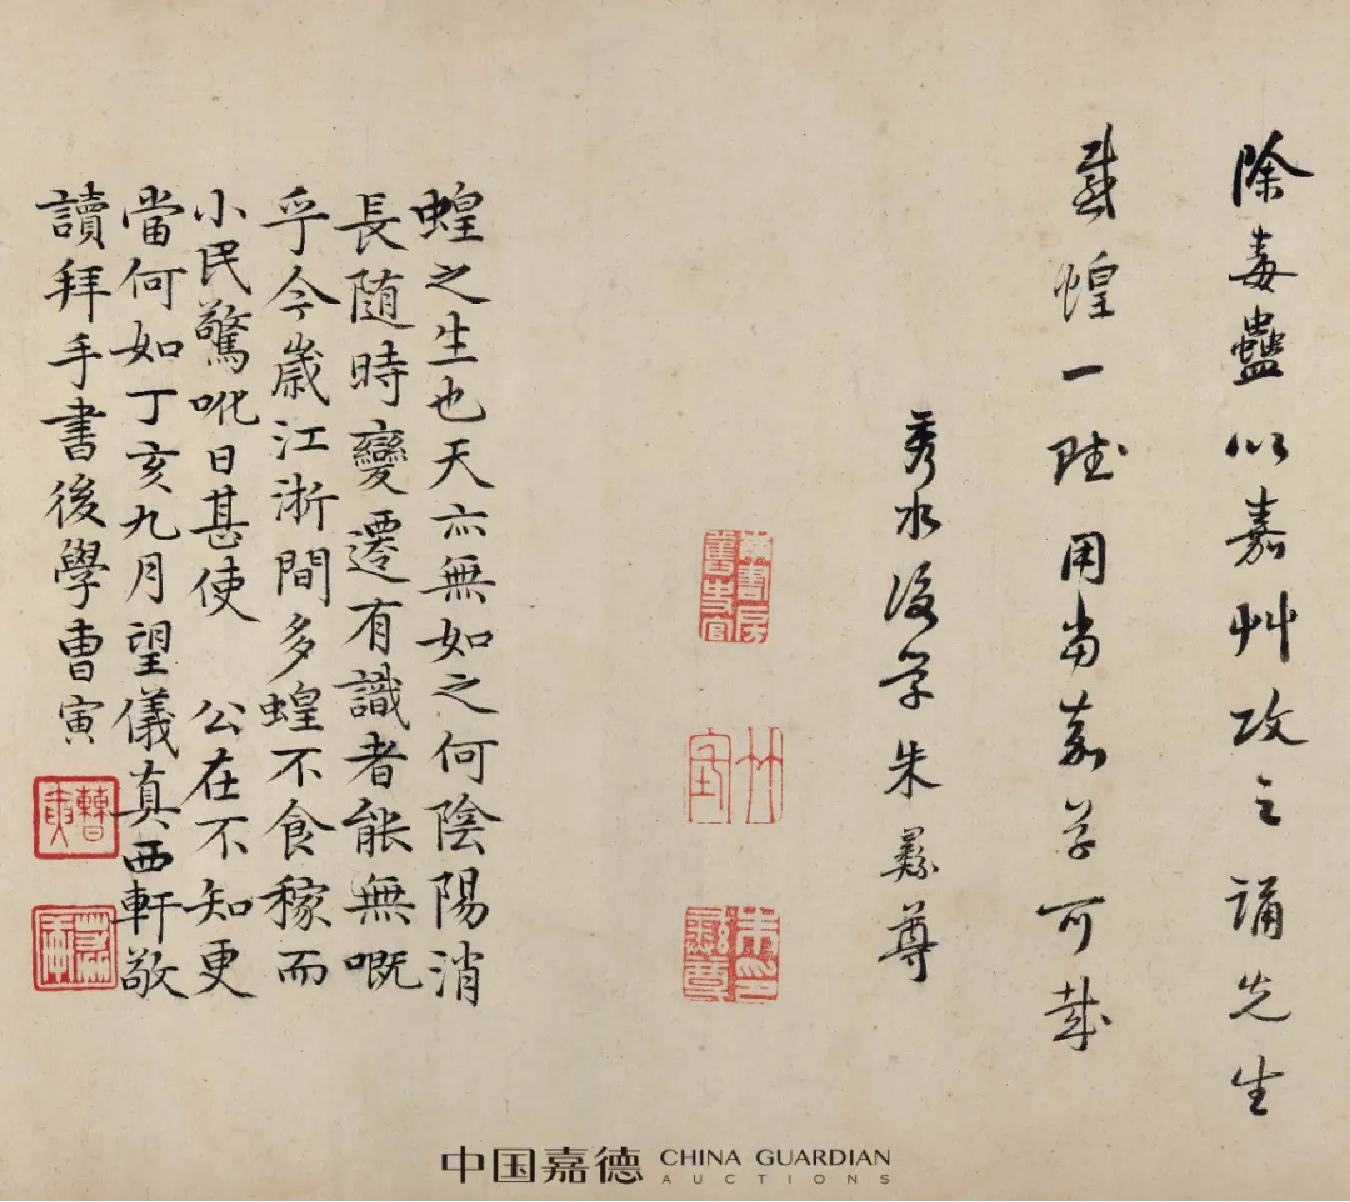 除毒蠱以嘉艸攻之誦先生
感蝗一賦用當嘉草可哉
秀水後學朱彝尊
蝗之生也天亦無如之何陰陽消
長隨時變遷有識者能無嘅
乎今歲江浙間多蝗不食稼而
小民驚吪日甚使 公在不知更
當何如丁亥九月望儀真西軒敬
讀拜手書後學曹寅
中国嘉德 CHINA GUARDIAN
AUCTIONS